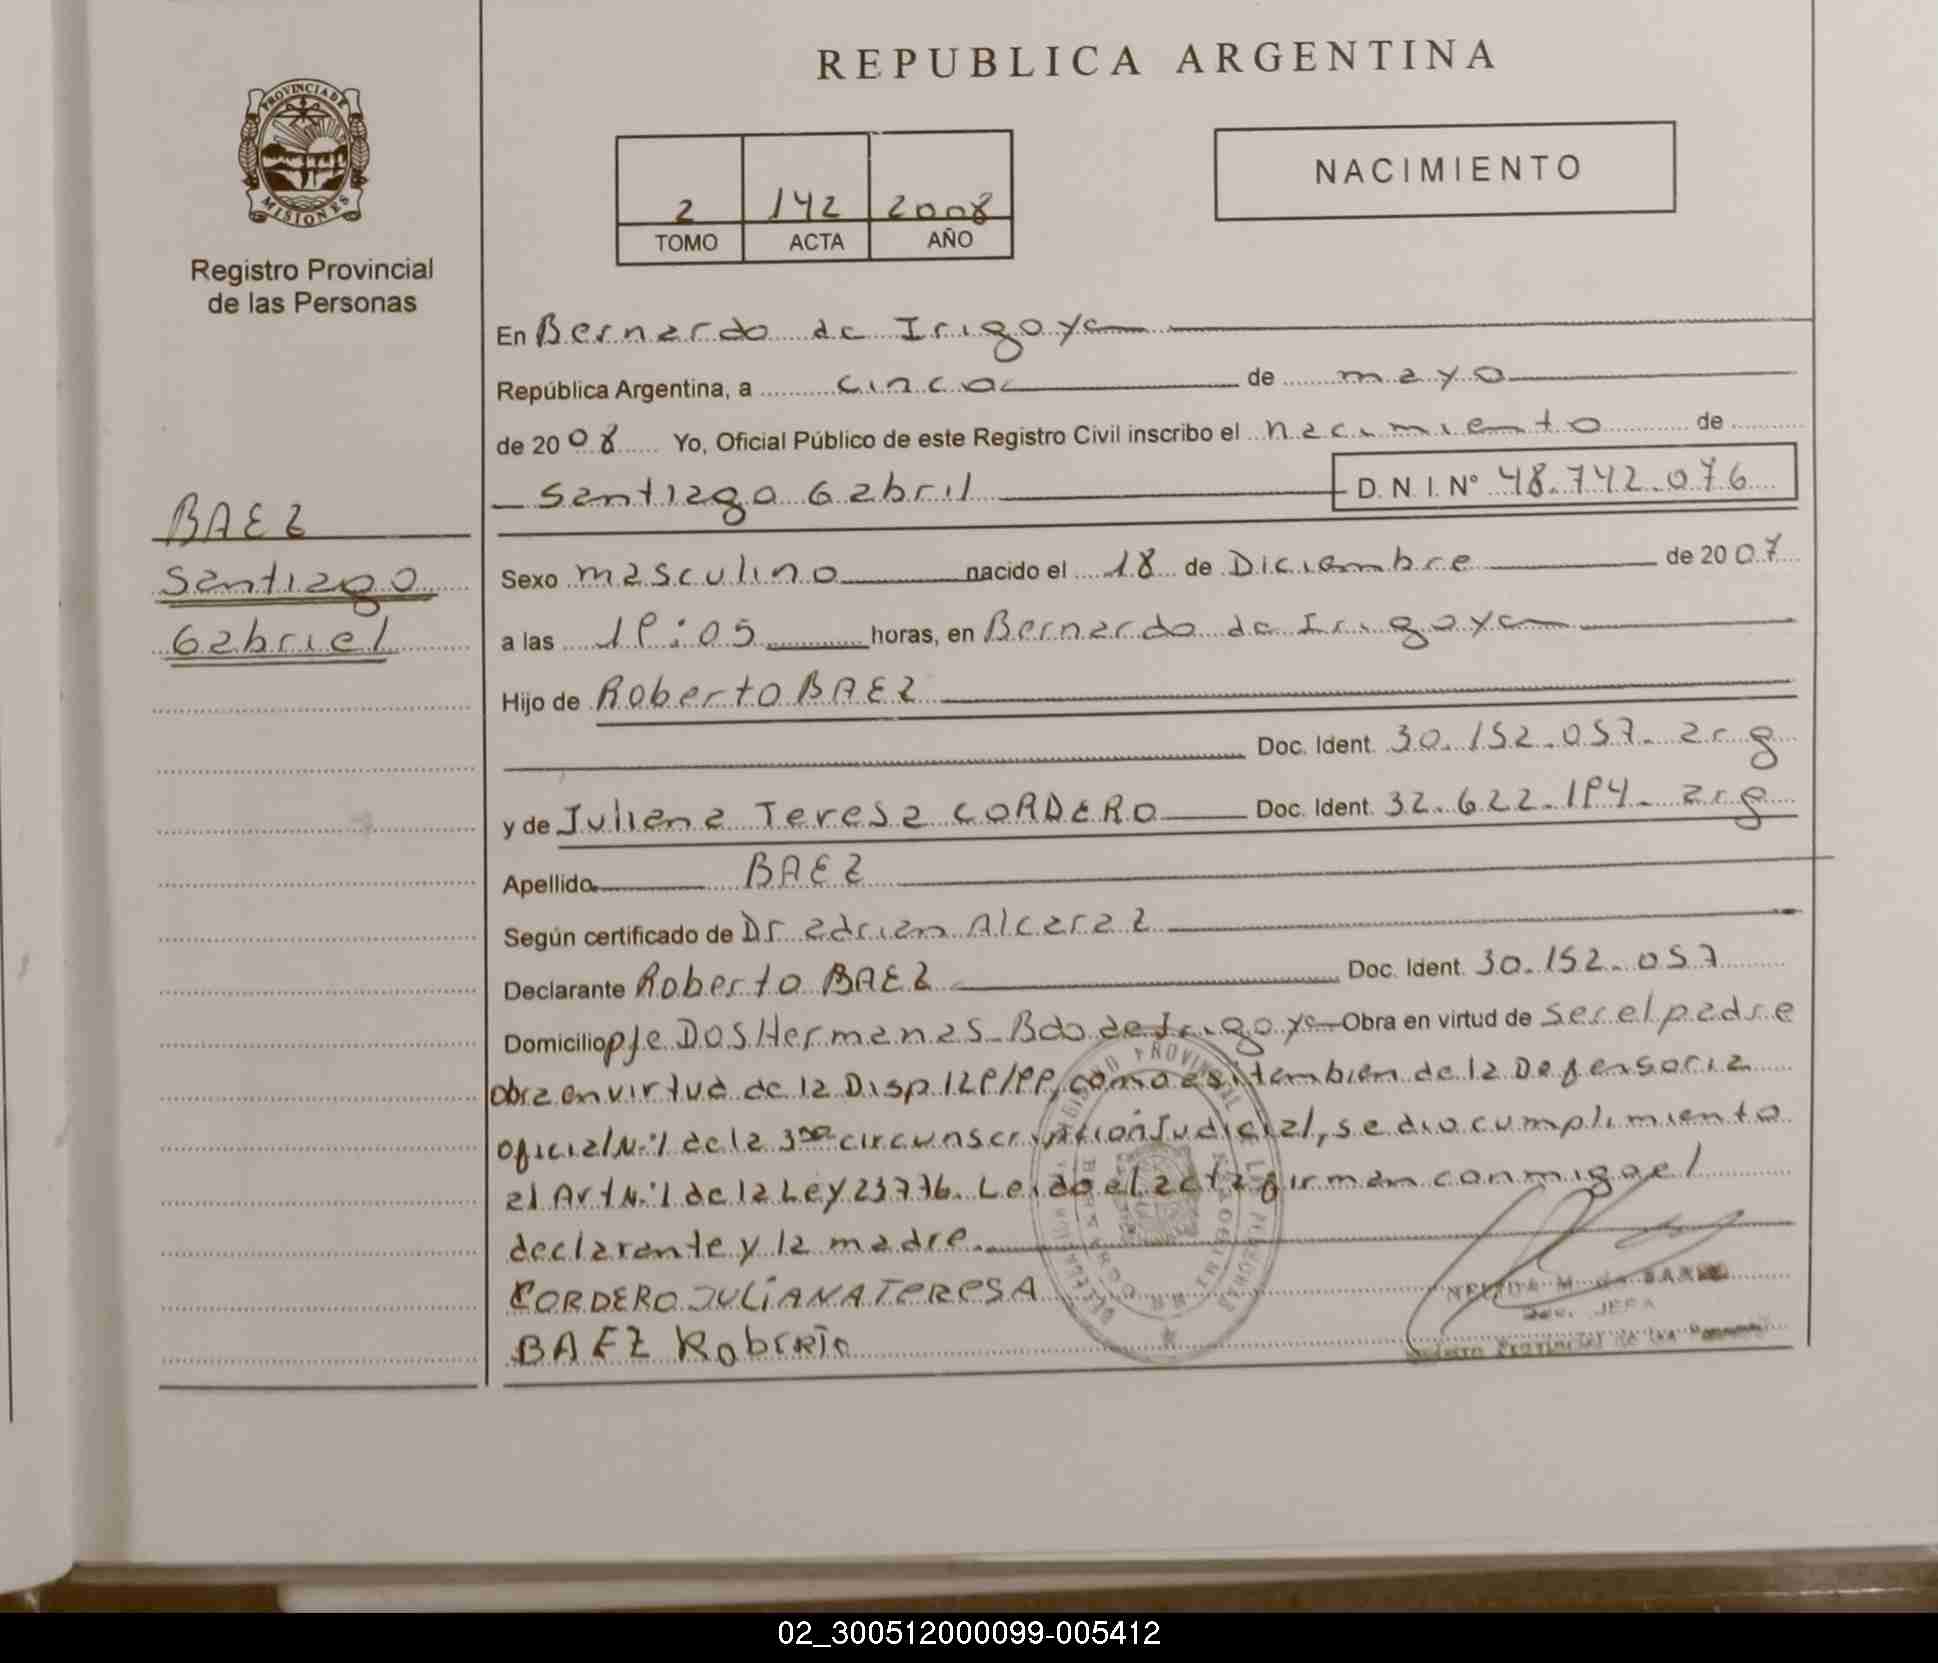 REPUBLICA ARGENTINA
PROVINCIA DE MISIONES
Registro Provincial
de las Personas
2 142 2008
TOMO ACTA AÑO
NACIMIENTO
BAEZ
Santiago
Gabriel
En Bernardo de Irigoye
República Argentina, a cinco de mayo
de 2008 Yo, Oficial Público de este Registro Civil inscribo el nacimiento de
Santiago Gabril D. N. I. N° 48.742.076
Sexo masculino nacido el 18 de Diciembre de 2007
a las 19:05 horas, en Bernardo de Irigoye
Hijo de Roberto BAEZ
Doc. Ident. 30.152.057- arg
y de Juliana Teresa CORDERO Doc. Ident. 32.622.194- arg
Apellido BAEZ
Según certificado de Dr adrian Alcaraz
Declarante Roberto BAEZ Doc. Ident. 30.152.057
Domicilio pje DOS Hermanas- Bdo de Irigoye Obra en virtud de ser el padre
obra en virtud de la Disp. 129/99, como asi tambien de la Defensoria
oficial N.º1 de la 3ra circunscripcion Judicial, se dio cumplimiento
al Art N.º1 de la Ley 23776. Leido el acta firman conmigo el
declarante y la madre.
CORDERO JULIANA TERESA
BAEZ Roberto
REGISTRO PROVINCIAL DE LAS PERSONAS
JEFA
Registro Provincial de las Personas
02_300512000099-005412